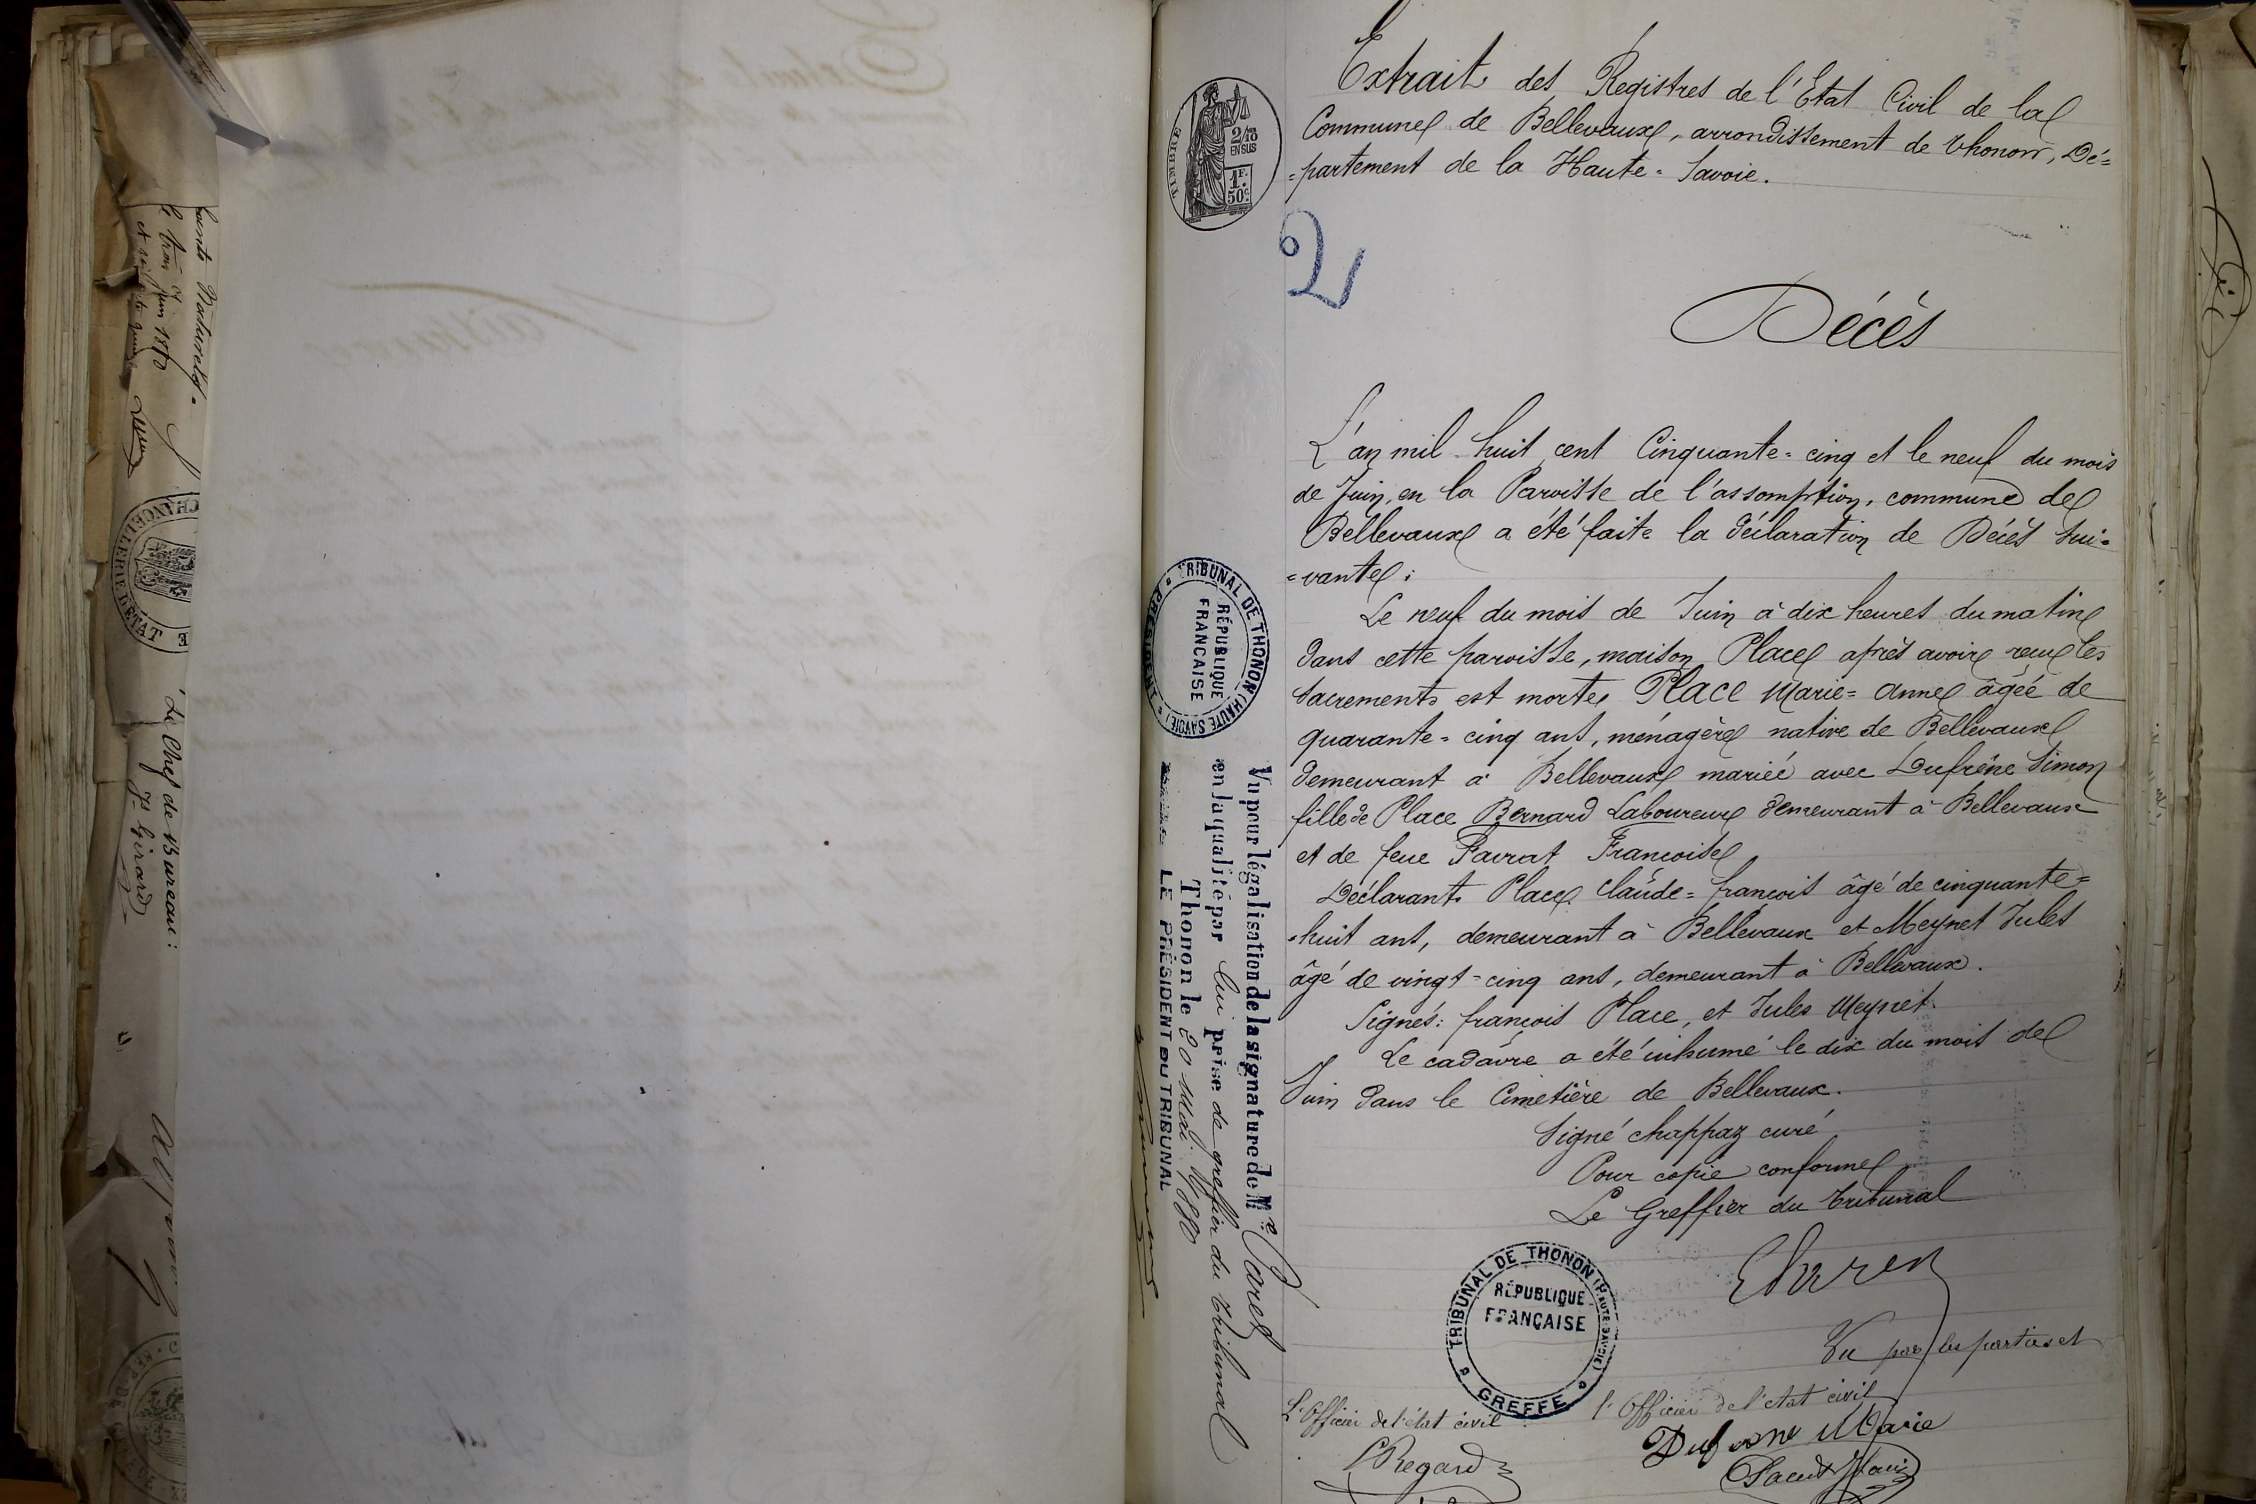 Naturels.
le trois Juin 1870
CHANCELLERIE D'ÉTAT
Le Chef de Bureau :
Js Girard
TIMBRE
2/10
EN SUS
1F.
50c
2
TRIBUNAL DE THONON (HAUTE SAVOIE)
PRÉSIDENT
RÉPUBLIQUE
FRANÇAISE
Vu pour légalisation de la signature de Me
en la qualité par lui prise de greffier du tribunal
Thonon le 20 Mai 1880
LE PRÉSIDENT DU TRIBUNAL
Extrait des Registres de l'Etat Civil de la
Commune de Bellevaux, arrondissement de Thonon, Dé=
=partement de la Haute-Savoie.
Décès
L'an mil huit cent Cinquante=cinq et le neuf du mois
de Juin, en la Paroisse de l'assomption, commune de
Bellevaux a été faite la déclaration de Décès sui=
=vante :
Le neuf du mois de Juin à dix heures du matin
dans cette paroisse, maison Place après avoir reçu les
Sacrements est morte, Place Marie=Anne âgée de
quarante=cinq ans, ménagère native de Bellevaux
demeurant à Bellevaux mariée avec Dufrêne Simon
fille de Place Bernard Laboureur demeurant à Bellevaux
et de feue Favrat Françoise
Déclarants Place Claude=françois âgé de cinquante=
=huit ans, demeurant à Bellevaux et Meynet Jules
âgé de vingt=cinq ans, demeurant à Bellevaux.
Signés: françois Place, et Jules Meynet.
Le cadavre a été inhumé le dix du mois de
Juin dans le Cimetière de Bellevaux.
Signé chappaz curé
Pour copie conforme
Le Greffier du tribunal
TRIBUNAL DE THONON (HAUTE-SAVOIE)
RÉPUBLIQUE
FRANÇAISE
GREFFE
Vu par les parties et
l'Officier de l'état civil
L'Officier de l'état civil
Regard
Dufresne Marie